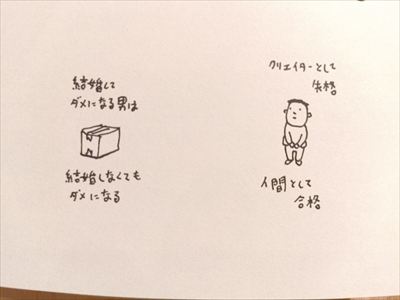 結婚して
ダメになる男は
結婚しなくても
ダメになる
クリエイターとして
失格
人間として
合格